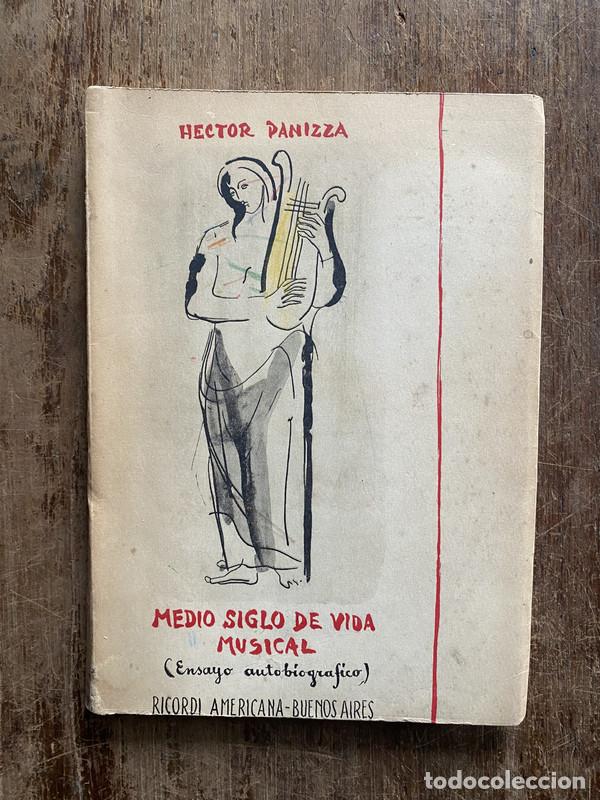 HECTOR PANIZZA
MEDIO SIGLO DE VIDA
MUSICAL
(Ensayo autobiografico)
RICORDI AMERICANA-BUENOS AIRES
todocoleccion